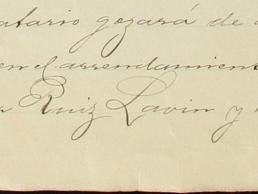 atario gozará de
en el arrendamient
Ruiz Lavin y